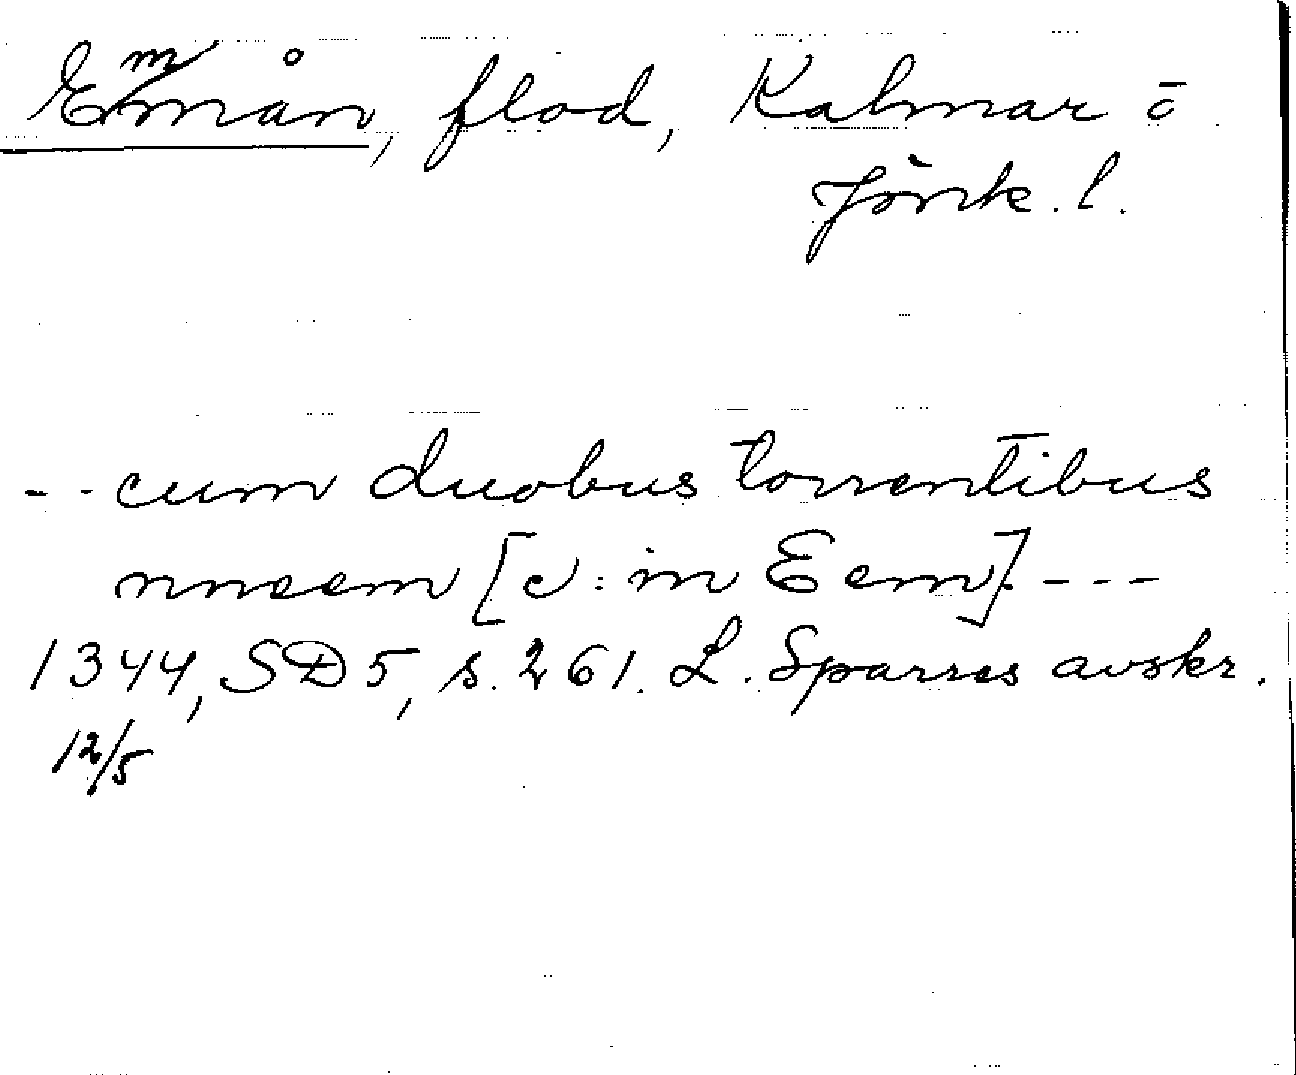 Emmån, flod, Kalmar o
Jönk. l.
- - cum duobus torrentibus
nneem [ɔ: in Eem] - - -
1344, SD 5, s. 261. L. Sparres avskr.
12/5